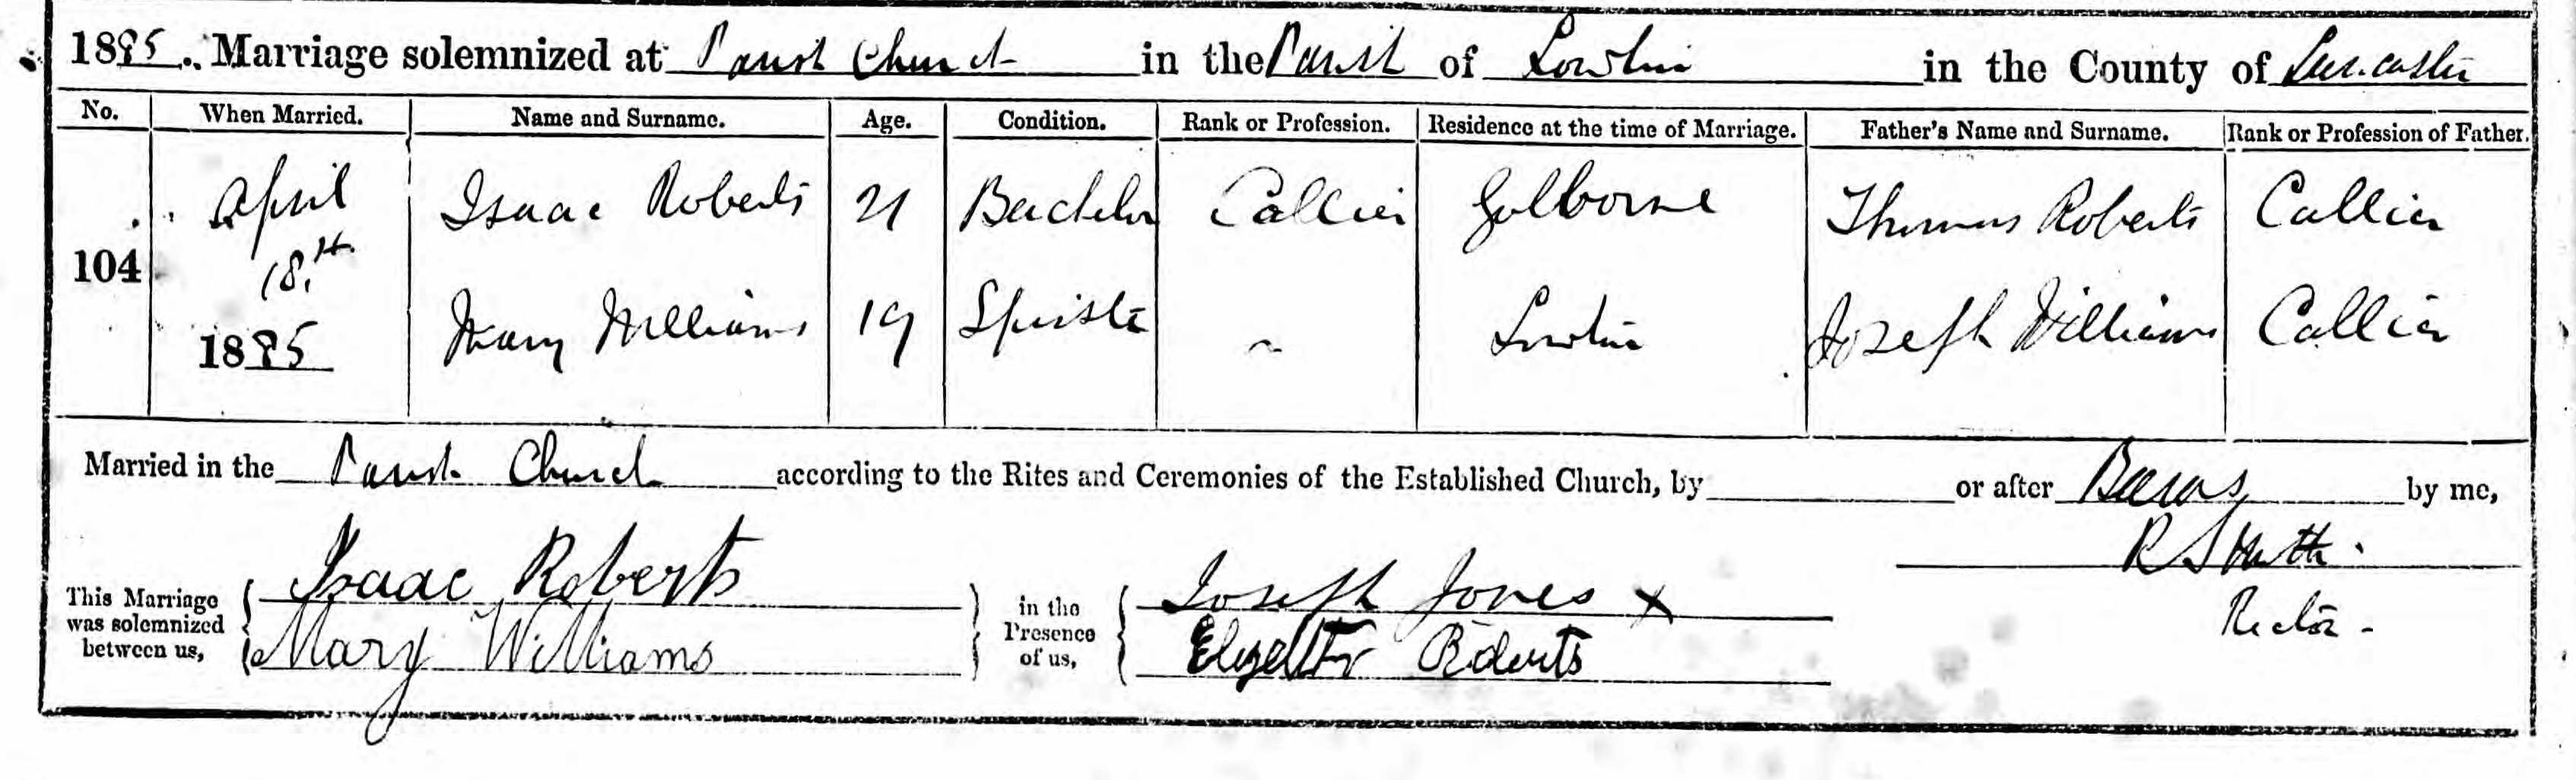 1885. Marriage solemnized at Parish Church in the Parish of Lowton in the County of Lancaster
No. When Married. Name and Surname. Age. Condition. Rank or Profession. Residence at the time of Marriage. Father's Name and Surname. Rank or Profession of Father.
104 April 18th 1885 Isaac Roberts 21 Bachelor Collier Golborne Thomas Roberts Collier
Mary Williams 19 Spinster ~ Lowton Joseph Williams Collier
Married in the Parish Church according to the Rites and Ceremonies of the Established Church, by or after Banns by me,
This Marriage was solemnized between us, Isaac Roberts Mary Williams in the Presence of us, Joseph Jones X Elizabeth Roberts
Rector